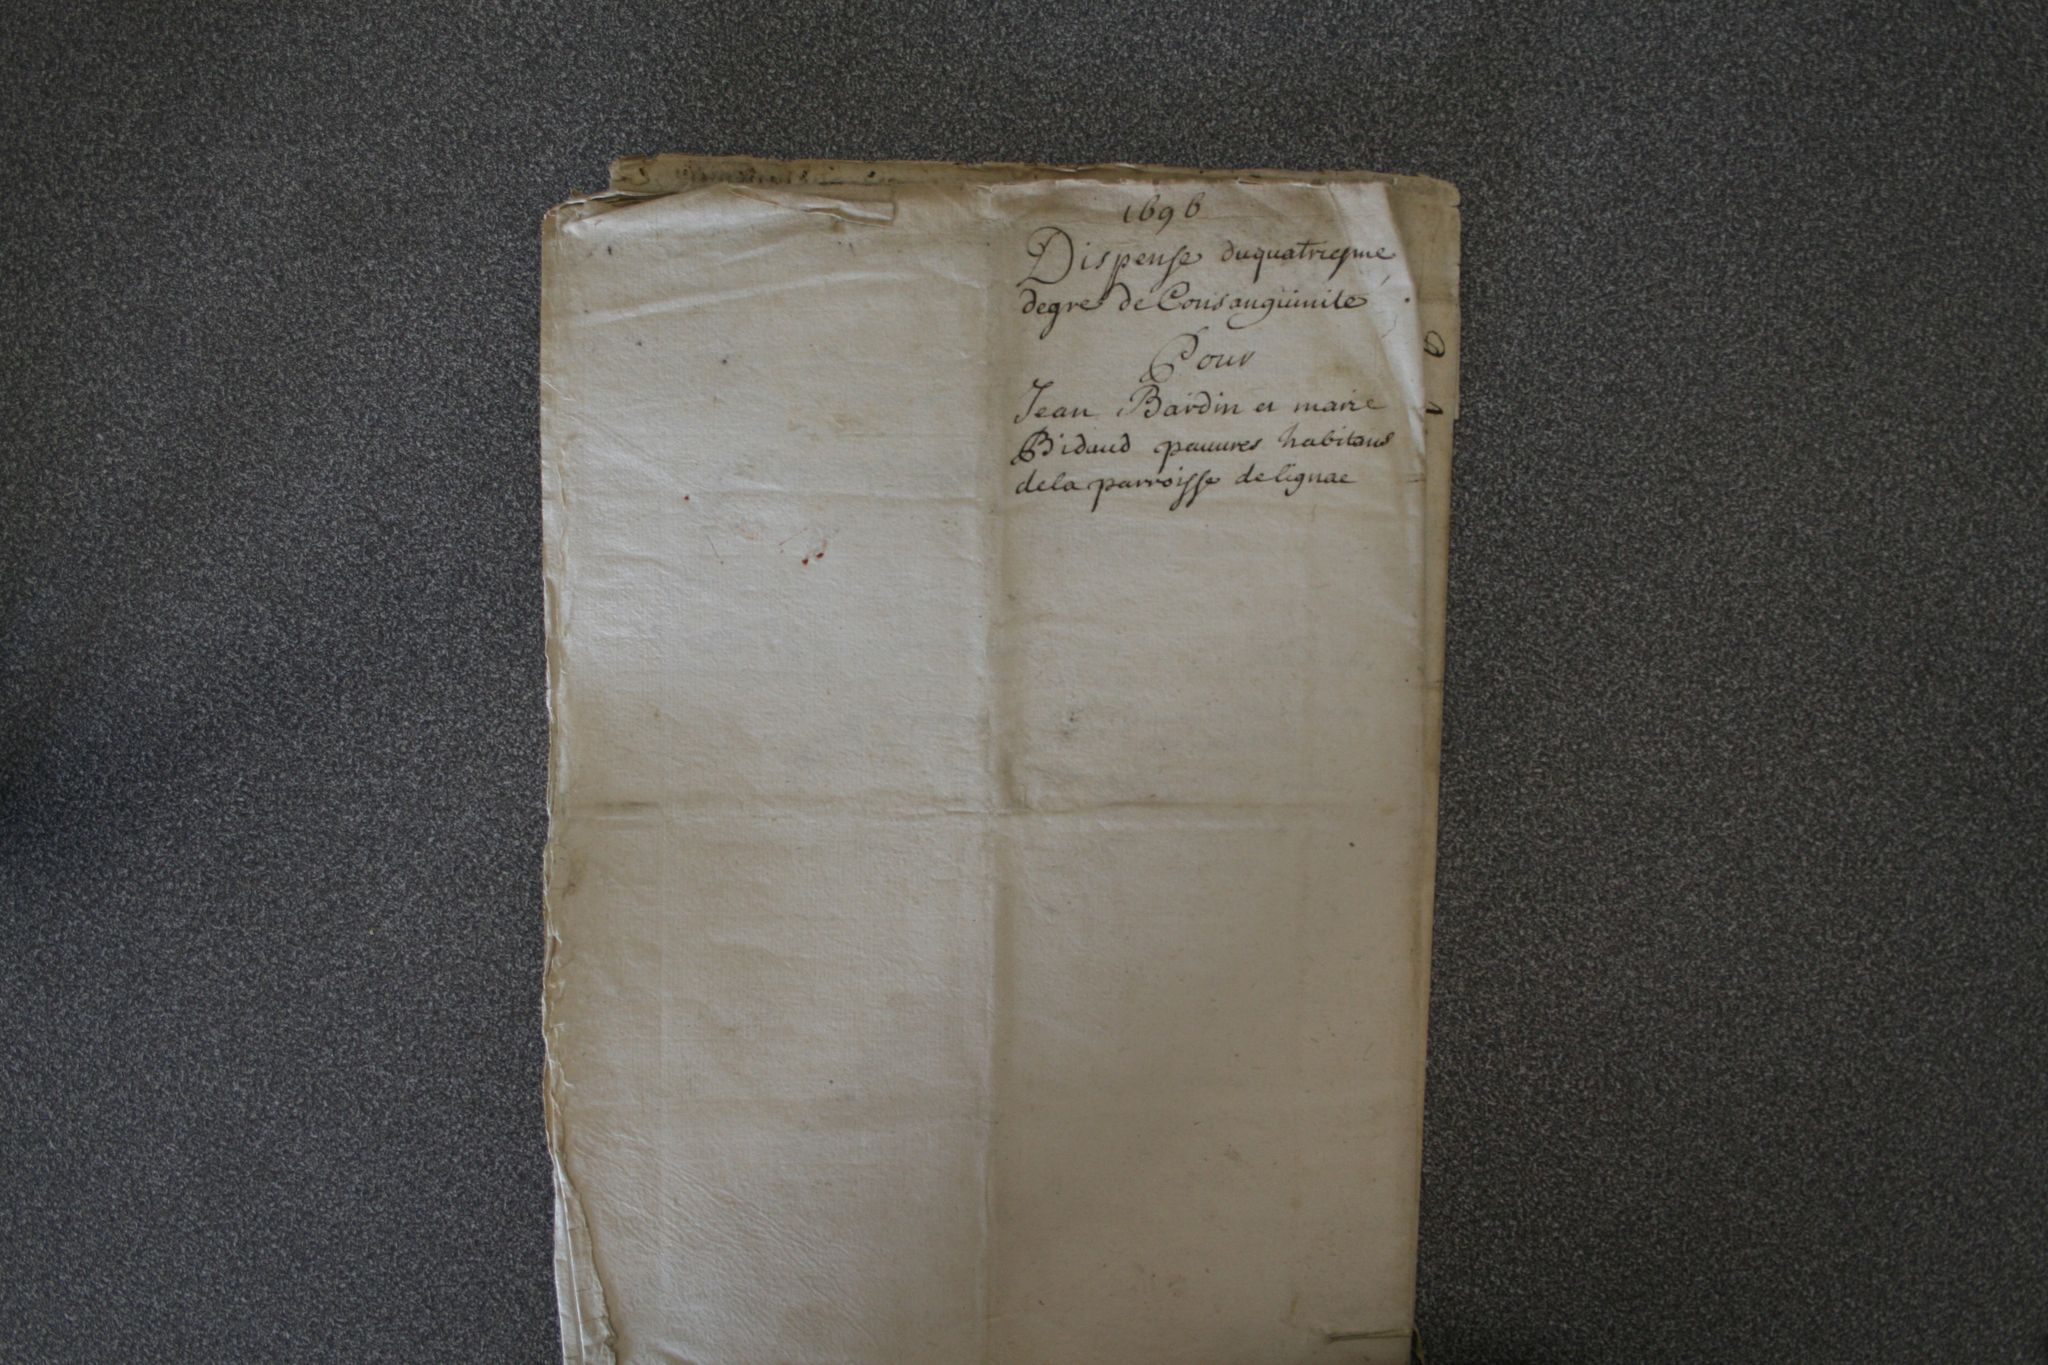 1696
Dispense du quatriesme
degre de Consanguinité
Pour
Jean Bardin et marie
Bidaud pauures habitans
de la parroisse de lignac